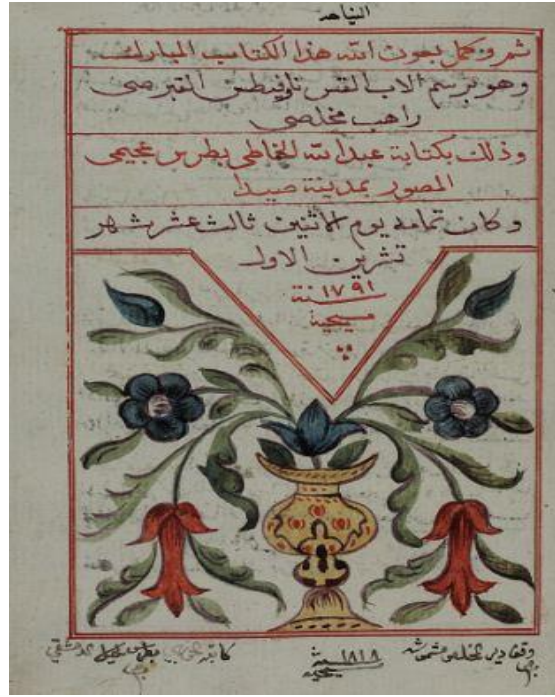 ثم وكمل بعون الله هذا الكتاب المبارك
وهو برسم الاب القس تاوفيطس القبرصي
راهب مخلصي
وذلك بكتابة عبد الله الخاطي بطرس عجيمي
المصور بمدينة صيدا
وكان تمامه يوم الاثنين ثالث عشر شهر
تشرين الاول
سنة ١٧٩١
مسيحية
وقف دير المخلص
سنة ١٨١٨
مسيحية
كاتبه